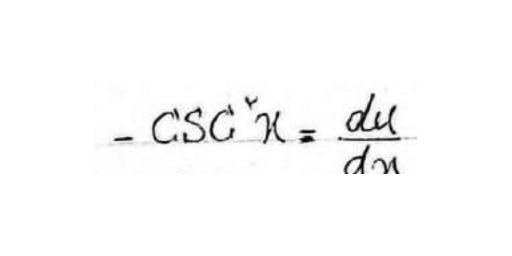 - csc²x = du/dx